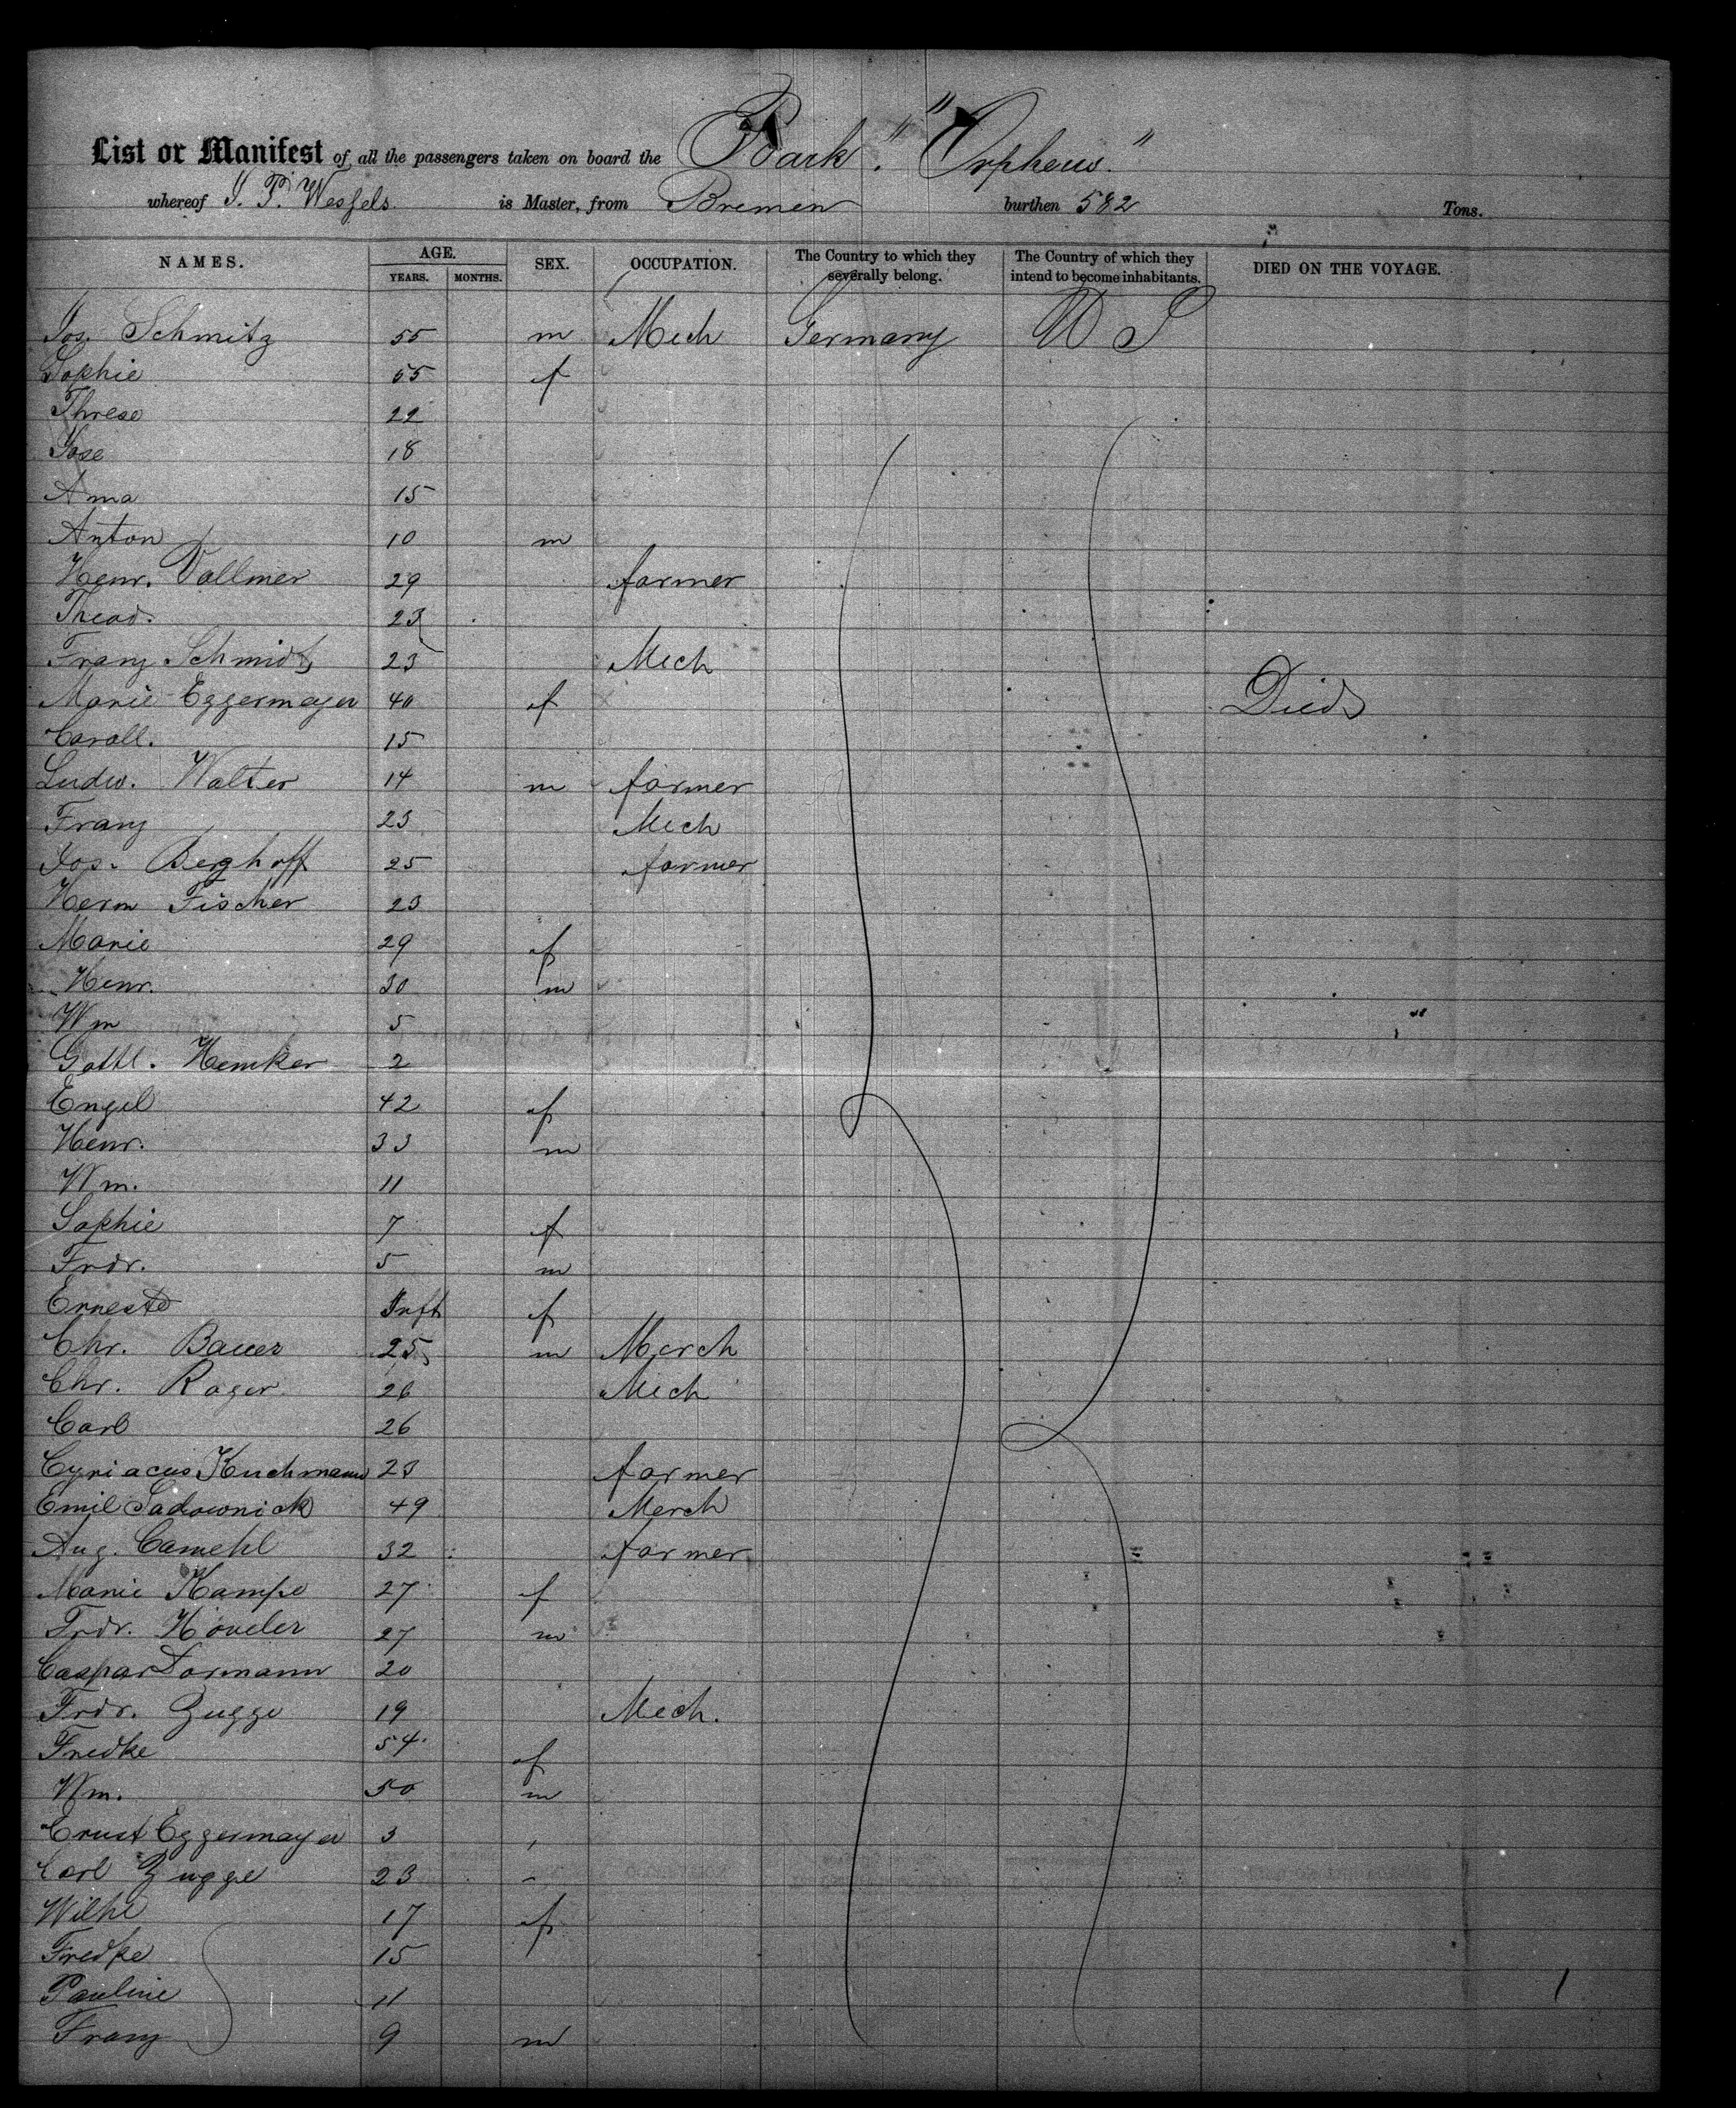 List or Manifest of all the passengers taken on board the Bark. "Orpheus."
whereof J. P. Wessels is Master, from Bremen burthen 582 Tons.
NAMES. AGE. YEARS. MONTHS. SEX. OCCUPATION. The Country to which they severally belong. The Country of which they intend to become inhabitants. DIED ON THE VOYAGE.
Jos. Schmitz 55 m Mech Germany U S
Sophie 55 f
Threse 22
Jose 18
Anna 15
Anton 10 m
Henr. Vollmer 29 farmer
Theod. 23
Franz Schmidt 23 Mech
Marie Eggermeyer 40 f Died
Caroll. 15
Ludw. Walter 14 m farmer
Franz 23 Mech
Jos. Berghoff 25 farmer
Herm Fischer 23
Marie 29 f
Henr. 30 m
Wm 5
Gottl. Hemker 2
Engel 42 f
Henr. 33 m
Wm. 11
Sophie 7 f
Frdr. 5 m
Erneste Inft f
Chr. Bauer 25 m Merch
Chr. Rager 26 Mech
Carl 26
Cyriacus Kuchmann 23 farmer
Emil Sadownick 49 Merch
Aug. Camehl 32 farmer
Marie Kampe 27 f
Frdr. Höveler 27 m
Caspar Dormann 20
Frdr. Zugge 19 Mech.
Fredke 54 f
Wm. 50 m
Ernst Eggermayer 3
Carl Zugge 23
Wilhe 17 f
Fredke 15
Pauline 11
Franz 9 m